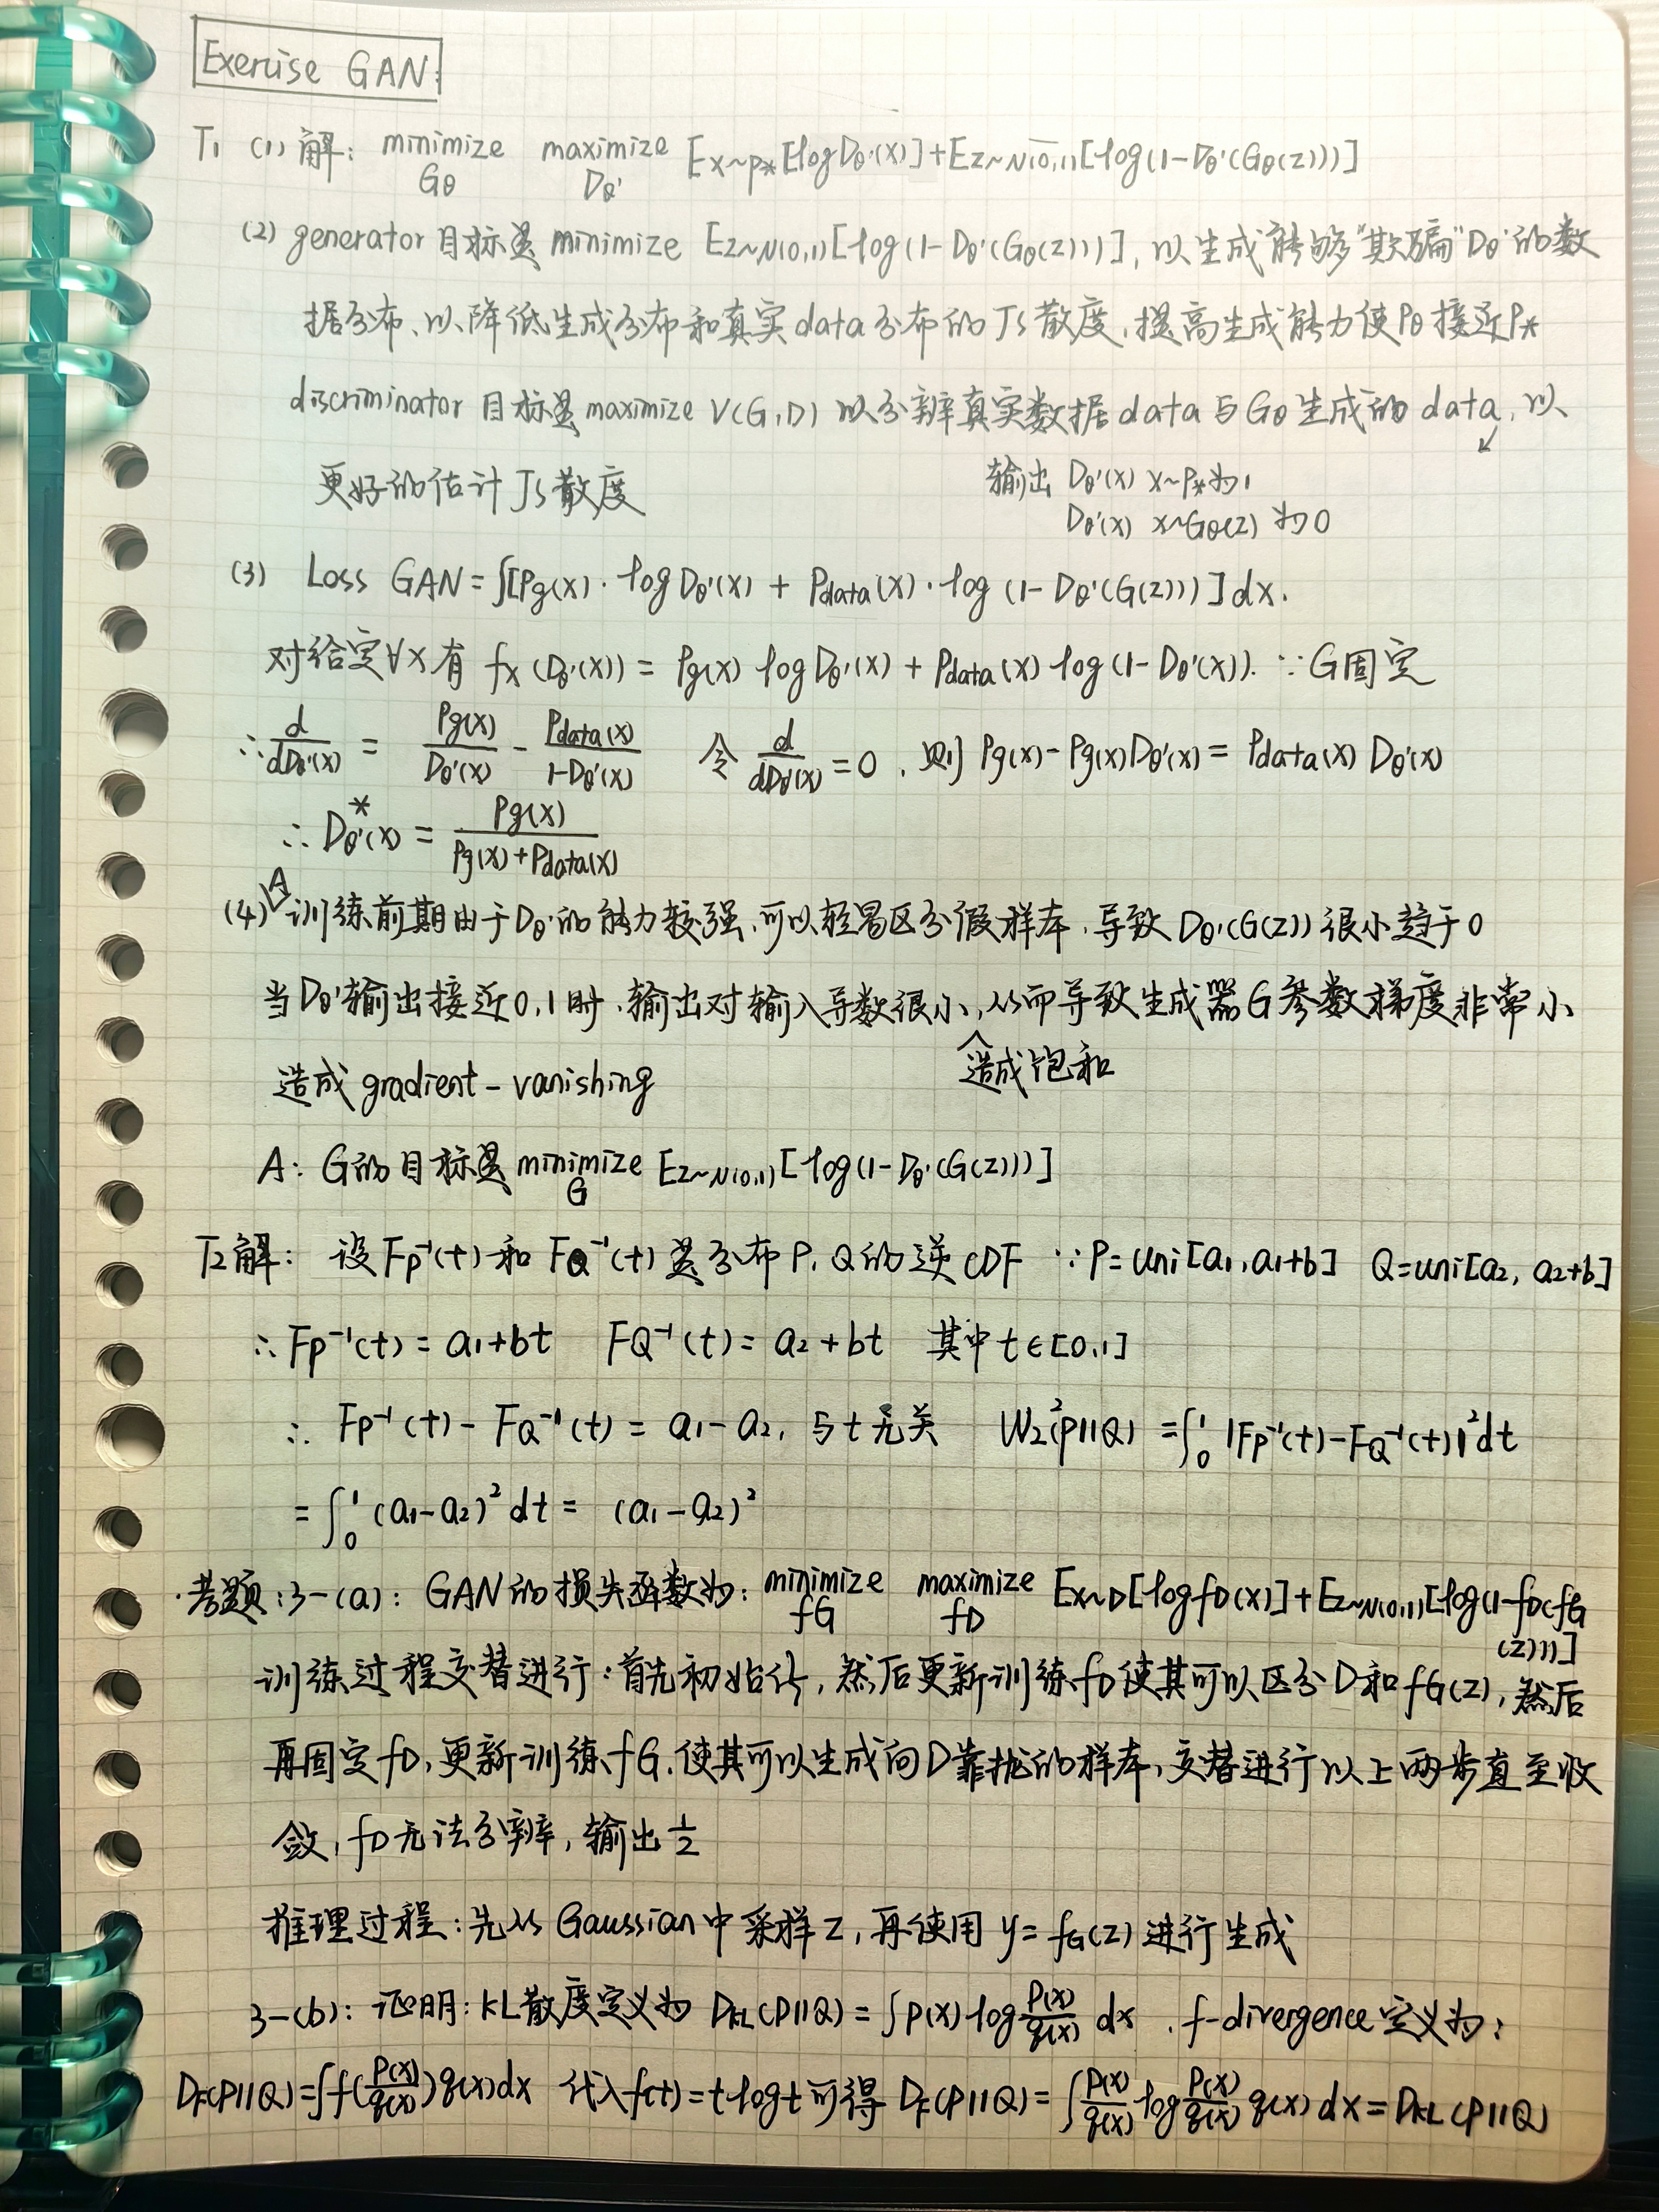 Exercise GAN:
T1 (1) 解: minimize maximize Ex~p*[logDθ'(x)]+Ez~N(0,1)[log(1-Dθ'(Gθ(z)))]
Gθ Dθ'
(2) generator 目标是 minimize Ez~N(0,1)[log(1-Dθ'(Gθ(z)))], 以生成能够"欺骗"Dθ'的数
据分布、以降低生成分布和真实data分布的JS散度,提高生成能力使Pθ接近P*
discriminator 目标是 maximize V(G,D) 以分辨真实数据data与Gθ生成的data, 以
更好的估计JS散度
↙
输出 Dθ'(x) x~P*为1
Dθ'(x) x~Gθ(z) 为0
(3) Loss GAN=∫[Pg(x)·logDθ'(x) + Pdata(x)·log(1-Dθ'(G(z)))]dx.
对给定∀x有 fx(Dθ'(x)) = Pg(x) logDθ'(x) + Pdata(x) log(1-Dθ'(x)). ∵G固定
∴ d/dDθ'(x) = Pg(x)/Dθ'(x) - Pdata(x)/1-Dθ'(x) 令 d/dDθ'(x) =0, 则 Pg(x)-Pg(x)Dθ'(x) = Pdata(x) Dθ'(x)
∴ Dθ'*(x) = Pg(x)/Pg(x)+Pdata(x)
(4) A 训练前期由于Dθ'的能力较强,可以轻易区分假样本,导致 Dθ'(G(z)) 很小趋于0
当Dθ'输出接近0,1时,输出对输入导数很小,从而导致生成器G参数梯度非常小
造成饱和
造成 gradient-vanishing
A: G的目标是 minimize Ez~N(0,1)[log(1-Dθ'(G(z)))]
G
T2解: 设Fp⁻¹(t)和FQ⁻¹(t)是分布P,Q的逆CDF ∵P=Uni[a1,a1+b] Q=uni[a2, a2+b]
∴ Fp⁻¹(t) = a1+bt FQ⁻¹(t) = a2+bt 其中t∈[0,1]
∴ Fp⁻¹(t)-FQ⁻¹(t) = a1-a2, 与t无关 W2²(P||Q) =∫₀¹|Fp⁻¹(t)-FQ⁻¹(t)|²dt
=∫₀¹(a1-a2)²dt = (a1-a2)²
·考题:3-(a): GAN的损失函数为: minimize maximize Ex~D[logfD(x)]+Ez~N(0,1)[log(1-fD(fG
fG fD
(z)))]
训练过程交替进行:首先初始化,然后更新训练fD使其可以区分D和fG(z),然后
再固定fD,更新训练fG,使其可以生成向D靠拢的样本,交替进行以上两步直至收
敛,fD无法分辨,输出1/2
推理过程:先从Gaussian中采样z,再使用 y=fG(z) 进行生成
3-(b): 证明: KL散度定义为 DKL(P||Q) = ∫P(x) log P(x)/q(x) dx , f-divergence定义为:
Df(P||Q)=∫f(P(x)/q(x))q(x)dx 代入f(t)=t·logt可得 Df(P||Q)=∫P(x)/q(x) log P(x)/q(x) q(x)dx=DKL(P||Q)